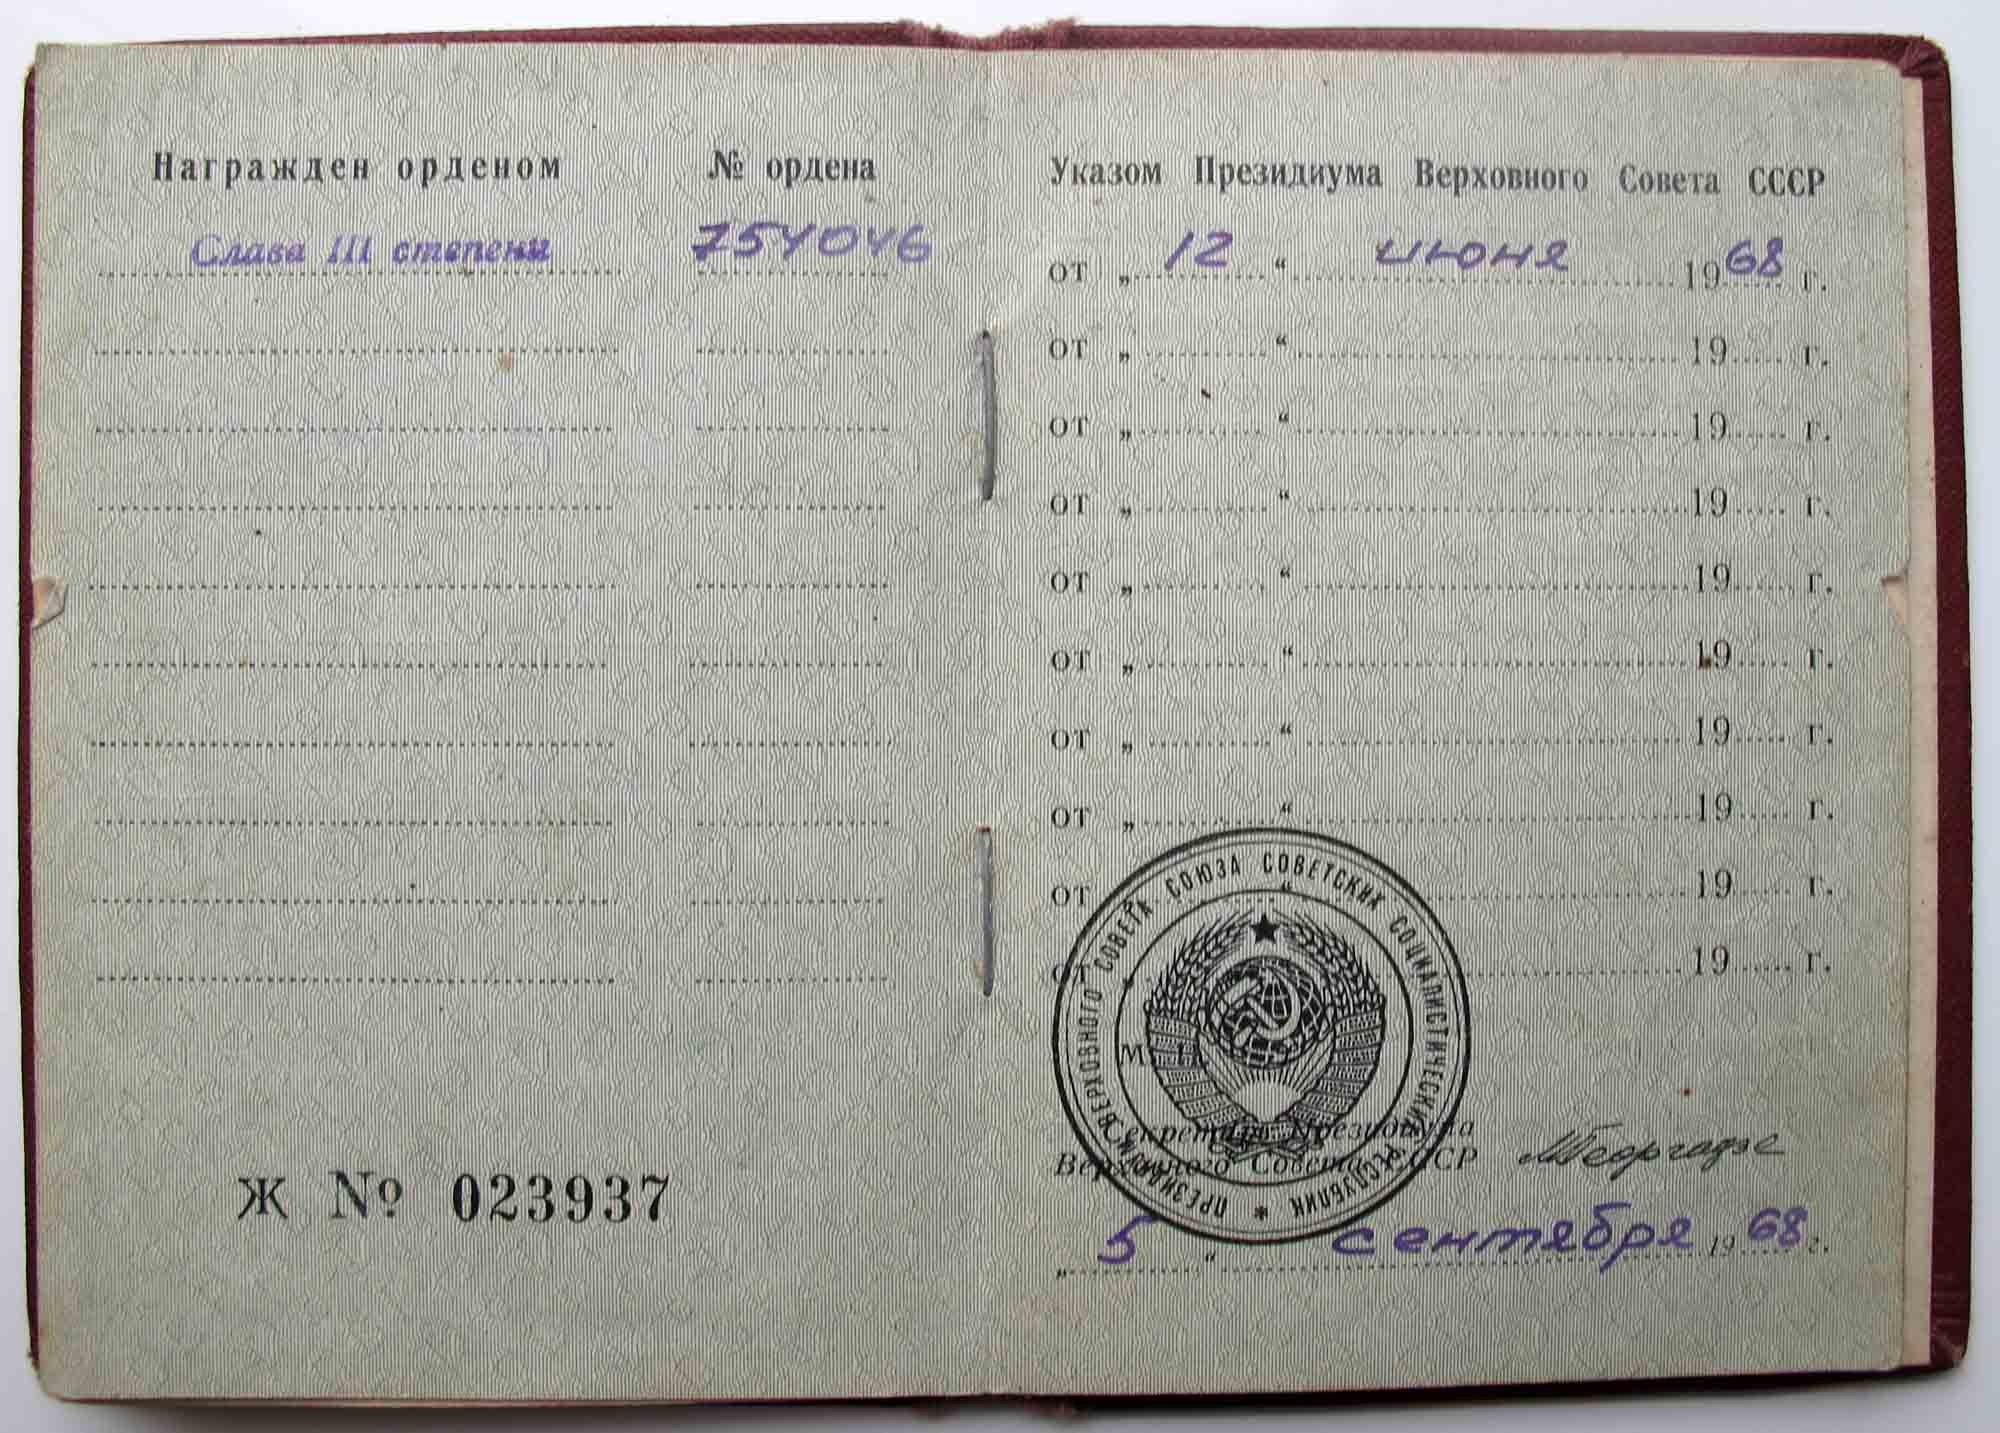 Награжден орденом № ордена
Слава III степени 754046
Ж № 023937
Указом Президиума Верховного Совета СССР
от „ 12 “ июня 1968 г.
от „ “ 19 г.
от „ “ 19 г.
от „ “ 19 г.
от „ “ 19 г.
от „ “ 19 г.
от „ “ 19 г.
от „ “ 19 г.
от “ 19 г.
от 19 г.
ПРЕЗИДИУМ ВЕРХОВНОГО СОВЕТА СОЮЗА СОВЕТСКИХ СОЦИАЛИСТИЧЕСКИХ РЕСПУБЛИК *
М
Секретарь Президиума
Верховного Совета СССР МГеоргадзе
„ 5 “ сентября 1968 г.